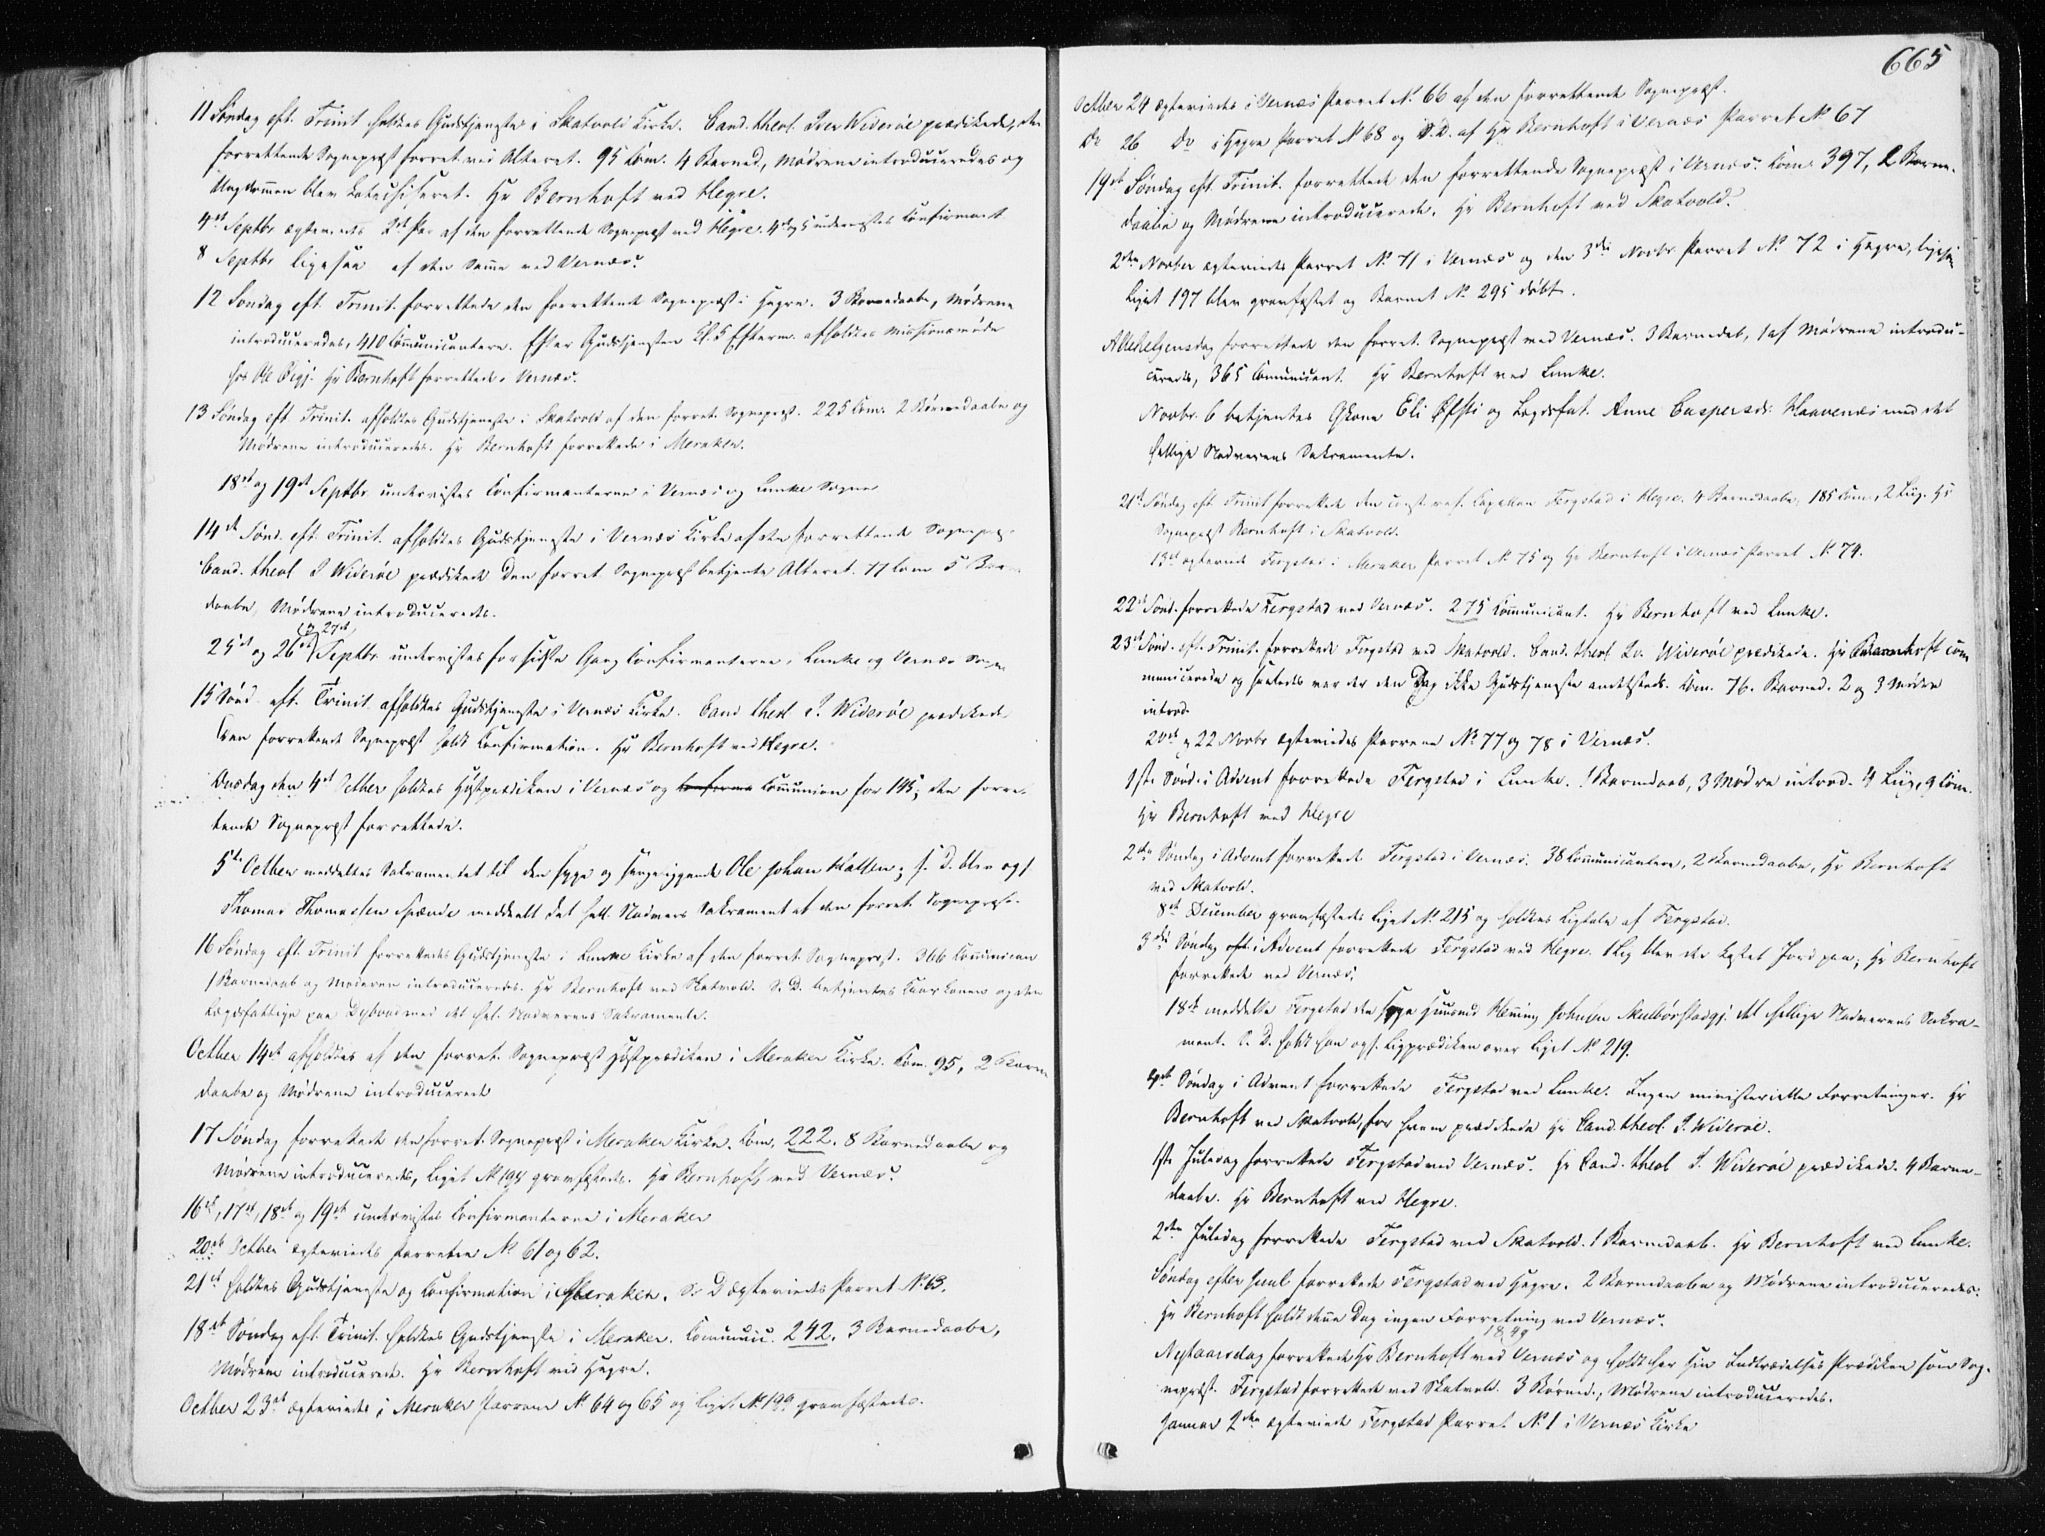 11 Søndag eft. Trinit holdtes Gudstjeneste i Skatvold Kirke. Cand. theol. Iver Widerøe prædikede, den
forrettende Sognepræst forret. ved Alteret. 95 Com. 4 Barned, Mødrene introduceredes og
Ungdommen blev katechiseret. Hr Bernhoft ved Hegre.
4de Septbr ægteviedes 2det Par af den forrettende Sognepræst ved Hegre. 4de og 5 underviistes Confirmant
8 Septbr ligesaa af den Samme ved Vernæs.
12 Søndag eft. Trinit. forrettede den forrettende Sognepræst i Hegre. 3 Barnedaabe, Mødrene
introduceredes, 410 Communicantere. Efter Gudstjenesten Kl. 5 Efterm. afholdtes Missionsmøde
hos Ole . Hr Bernhoft forrettede i Vernæs.
13 Søndag eft. Trinit. afholdtes Gudstjeneste i Skatvold af den forret. Sognepræst. 225 Com. 2 Barnedaabe og
Mødrene introduceredes. Hr Bernhoft forrettede i Meraker.
18de og 19de Septbr underviistes Confirmanterne i Vernæs og Lunke Sogne
14de Sønd. eft. Trinit. afholdtes Gudstjeneste i Vernæs Kirke af den forrettende Sognepræ.
Cand. theol I Widerøe prædikede Den forret Sognepræst betjente Alteret. 77 Com 5 Barne
daabe, Mødrene introduceredes.
og 27de
25de og 26de Septbr underviistes for sidste Gang Confirmanterne, Lunke og Vernæs Sogne
15 Sønd. eft. Trinit. afholdtes Gudstjeneste i Vernæs Kirke. Cand theol I. Widerøe prædikede
Den forrettende Sognepræst holdt Confirmation. Hr Bernhoft ved Hegre.
Onsdag den 4de Octber holdtes Høstprædiken i Vernæs og Communion for 145; den forret-
tende Sognepræst forrettede.
5te Octber meddeltes Sakramentet til den syge og sengeliggende Ole Johan ; s. D. blev ogs.
Thomas Thomassen meddeelt det hell. Nadvers Sakrament af den forret. Sognepræst.
16 Søndag eft Trinit forrettedes Gudstjeneste i Lunke Kirke af den forret Sognepræst. 366 Communican
1 Barnedaab og Moderen introduceredes. Hr Bernhoft ved Skatvold. S. D. betjentes og den
Lægdsfattige paa med det hel. Nadverens Sakramente.
Octber 14de afholdtes af den forret. Sognepræst Høstprædiken i Meraker Kirke. Com. 95, 2 Barne
daabe og Mødrene introducerede
17 Søndag forrettede den forret. Sognepræst i Meraker Kirke. Com. 222. 8 Barnedaabe og
Mødrene introduceredes, Liget No 194 gravfæstedes. Hr Bernhoft ved Vernæs.
16de, 17de, 18de og 19de underviistes Confirmanterne i Meraker
20de Octber ægteviedes Parrene No 61 og 62.
21de holdtes Gudstjeneste og Confirmation i Meraker. S. D ægteviedes Parret No. 63.
18de Søndag eft. Trinit. holdtes Gudstjeneste i Meraker. Communic. 242. 3 Barnedaabe,
Mødrene introducerede. Hr Bernhoft ved Hegre.
Octber 23de ægteviedes i Meraker Parrene No 64 og 65 og Liget No 199 gravfæstedes.
665
Octber 24 ægteviedes i Vernæs Parret No 66 af den forrettende Sognepræst.
Do 26 Do i Hegre Parret No 68 og S.D. af Hr Bernhoft i Vernæs Parret No 67
19de Søndag eft. Trinit. forrettede den forrettende Sognepræst i Vernæs. Com. 397, 2 Barne-
daabe og Mødrene introducerede. Hr Bernhoft ved Skatvold.
2den Novber ægteviedes Parret No. 71 i Vernæs og den 3die Novbr Parret No 72 i Hegre, ligesaa
Liget 197 blev gravfæstet og Barnet No. 295 døbt.
Allehelgensdag forrettede den forret. Sognepræst ved Vernæs. 3 Barnedab, 1 af Mødrene introdu-
ceredes, 365 Communicant. Hr Bernhoft ved Lunke.
Novbr. 6 betjentes Gkone Eli Øfsti og Lægdsfat. Anne Caspersd. Haavenæs med det
hellige Nadverens Sakramente.
21de Søndag eft. Trinit forrettede den const. res. Capellan Fergstad i Hegre. 4 Barnedaabe, 185 Com., 2 Liig. Hr
Sognepræst Bernhoft i Skatvold.
15de ægteviede Fergstad i Meraker Parret No 75 og Hr Bernhoft i Vernæs Parret No 74.
22de Sønd. forrettede Fergstad ved Vernæs. 275 Communicant. Hr Bernhoft ved Lunke.
23de Sønd. eft. Trinit. forrettede Fergstad ved Skatvold. Cand. theol Iv. Widerøe prædikede. Hr Bernhoft com
municerede og saaledes var der den Dag ikke Gudstjeneste andetsteds. Com. 76. Barned. 2 og 3 Mødre
introd.
20de og 22 Novbr ægteviedes Parrene No 77 og 78 i Vernæs.
1ste Sønd. i Advent forrettede Fergstad i Lunke. 1 Barnedaab, 3 Mødre introd. 4 Liig, 9 Com.
Hr Bernhoft ved Hegre
2den Søndag i Advent forrettede Fergstad i Vernæs. 38 Communicantere, 2 Barnedaabe, Hr Bernhoft
ved Skatvold.
8de December gravfæstedes Liget No. 215 og holdtes Ligtale af Fergstad.
3die Søndag i Advent forrettede Fergstad ved Hegre. 1 Lig blev der kastet Jord paa; Hr Bernhoft
forrettede ved Vernæs.
18de meddelte Fergstad den syge Huusmd Henning Johnsen det hellige Nadverens Sakra-
ment. S. D. holdt han ogs. Ligprædiken over Liget No 219.
4de Søndag i Advent forrettede Fergstad ved Lunke. Ingen ministerielle Forretninger. Hr
Bernhoft ved Skatvold, for hvem prædikede Hr Cand. theol. I. Widerøe.
1ste Juledag forrettede Fergstad ved Vernæs. Hr Cand. theol I. Widerøe prædikede. 4 Barne-
daabe. Hr Bernhoft ved Hegre.
2den Juledag forrettede Fergstad ved Skatvold. 1 Barnedaab. Hr Bernhoft ved Lunke.
Søndag efter Juul forrettede Fergstad ved Hegre. 2 Barnedaabe og Mødrene introduceredes.
Hr Bernhoft holdt denne Dag ingen Forretning ved Vernæs.
1849
Nytaarsdag forrettede Hr Bernhoft ved Vernæs og holdt her sin Indtrædelses Prædiken som Sog-
nepræst. Fergstad forrettede ved Skatvold. 3 Børned., Mødrene introduceredes.
Januar 2den ægteviede Fergstad Parret No. 1 i Vernæs Kirke